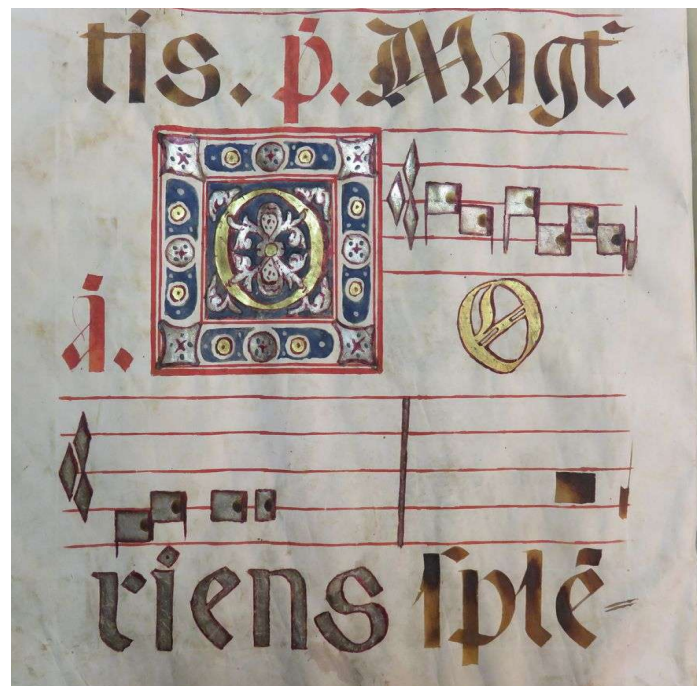 tis. ṗ. Magt̃.
O
O
riens ſplē-